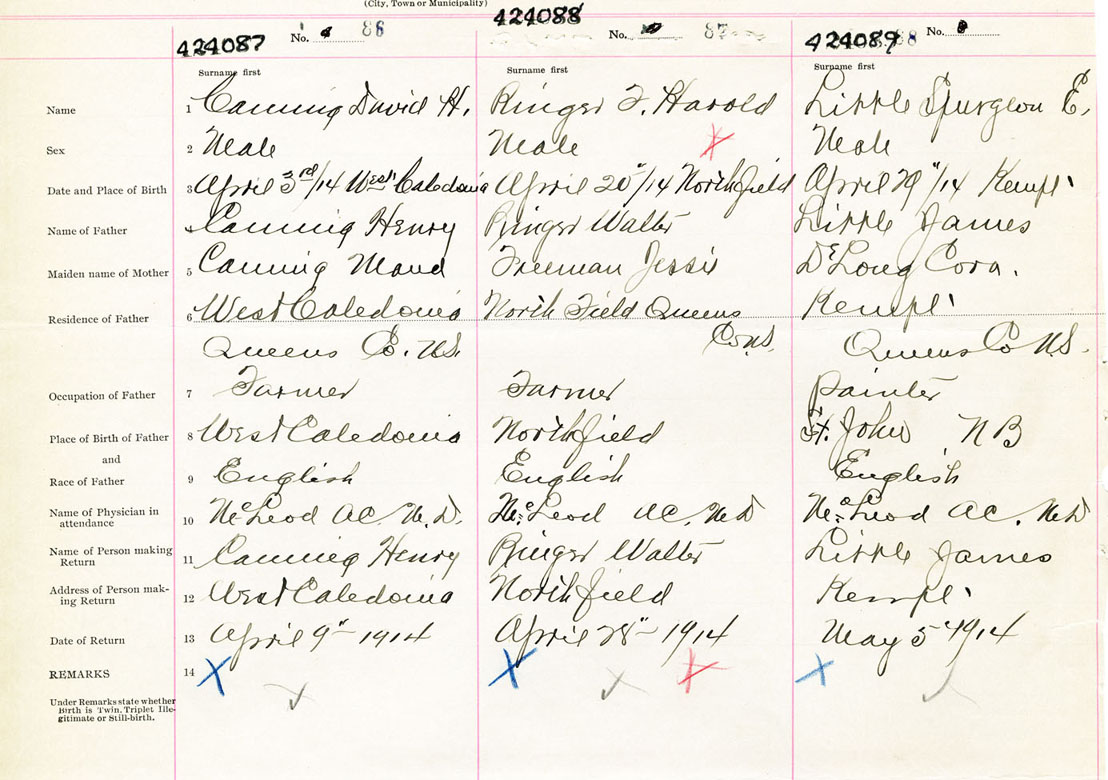 (City, Town or Municipality)
424087 No. 86 424088 No. 87 424089 88 No.
Surname first Surname first Surname first
Name 1 Canning David H. Ringer F. Harold Little Spurgeon E.
Sex 2 Male Male Male
Date and Place of Birth 3 April 3rd/14 West Caledonia April 20"/14 Northfield April 29"/14 Kempt
Name of Father 4 Canning Henry Ringer Walter Little James
Maiden name of Mother 5 Canning Maud Freeman Jessie DeLong Cora.
Residence of Father 6 West Caledonia North Field Queens Kempt
Queens Co. N.S. Co N.S. Queens Co N.S.
Occupation of Father 7 Farmer Farmer Painter
Place of Birth of Father 8 West Caledonia Northfield St. John NB
and
Race of Father 9 English English English
Name of Physician in attendance 10 McLeod AC. M.D. McLeod AC. M.D McLeod AC. M.D
Name of Person making Return 11 Canning Henry Ringer Walter Little James
Address of Person making Return 12 West Caledonia Northfield Kempt
Date of Return 13 April 9" 1914 April 28" 1914 May 5" 1914
REMARKS 14
Under Remarks state whether
Birth is Twin, Triplet Ille-
gitimate or Still-birth.